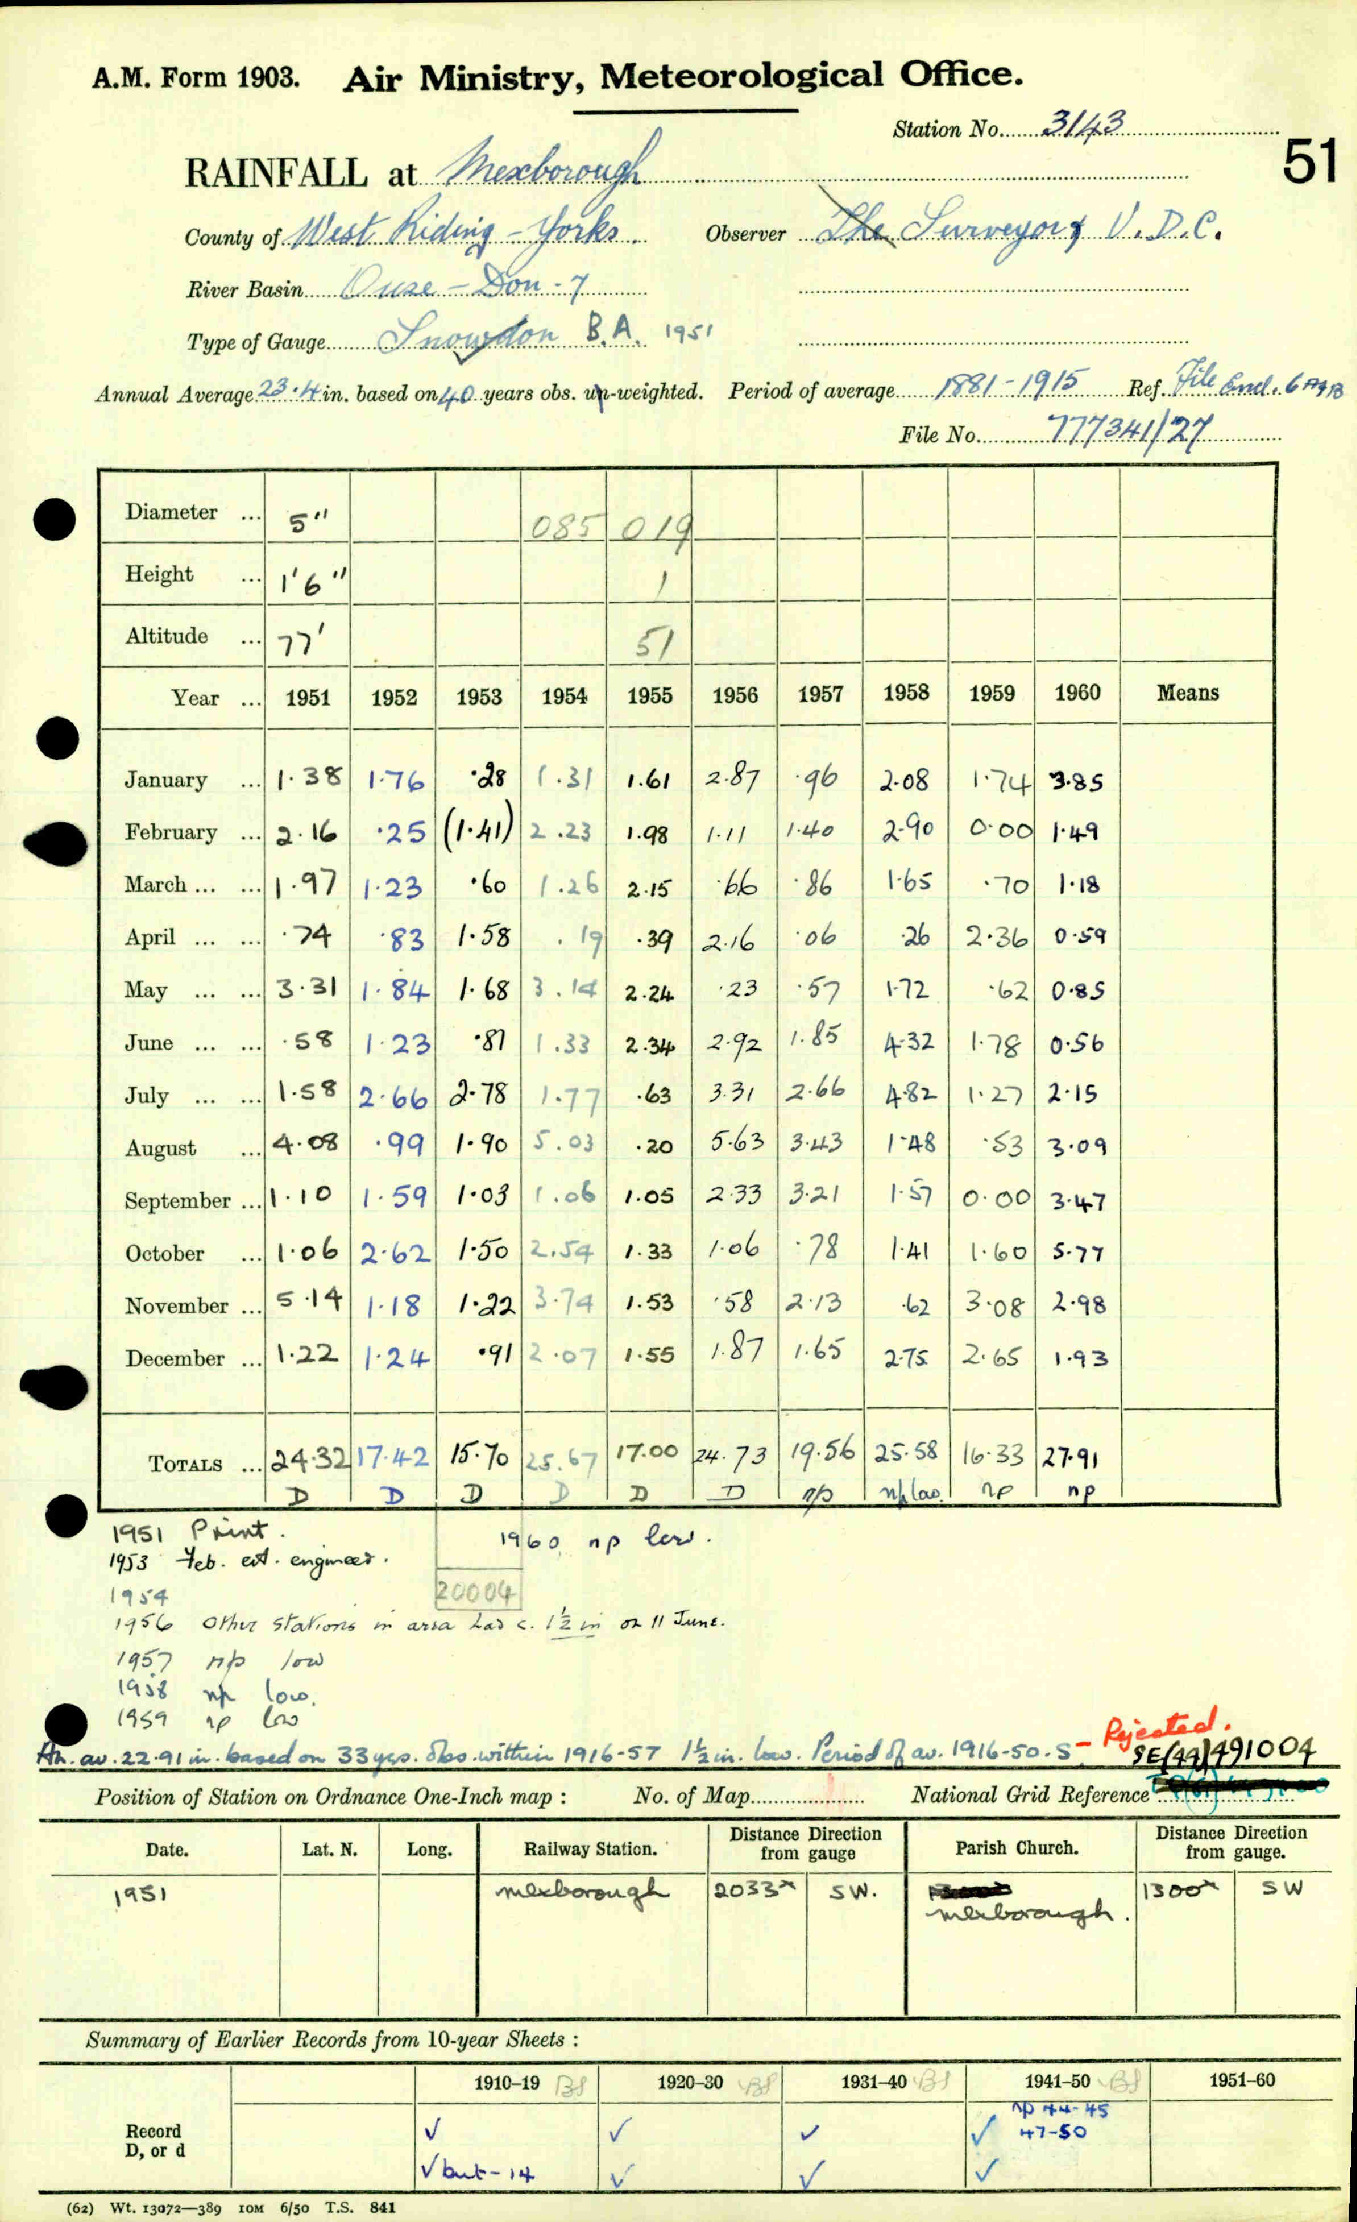 A.M. Form 1903. Air Ministry, Meteorological Office.
Station No. 3143
51
RAINFALL at Mexborough
County of West Riding - Yorks. Observer The Surveyor, U.D.C.
River Basin Ouse - Don - 7
Type of Gauge Snowdon B.A. 1951
Annual Average 23.4 in. based on 40 years obs. un-weighted. Period of average 1881-1915 Ref. File Encl. 6
File No. 777341/27
Diameter ... 5" 085 019
Height ... 1'6" 1
Altitude ... 77' 51
Year ... 1951 1952 1953 1954 1955 1956 1957 1958 1959 1960 Means
January ... 1.38 1.76 .28 1.31 1.61 2.87 .96 2.08 1.74 3.85
February ... 2.16 .25 (1.41) 2.23 1.98 1.11 1.40 2.90 0.00 1.49
March ... ... 1.97 1.23 .60 1.26 2.15 .66 .86 1.65 .70 1.18
April ... ... .74 .83 1.58 .19 .39 2.16 .06 .26 2.36 0.59
May ... ... 3.31 1.84 1.68 3.14 2.24 .23 .57 1.72 .62 0.85
June ... ... .58 1.23 .81 1.33 2.34 2.92 1.85 4.32 1.78 0.56
July ... ... 1.58 2.66 2.78 1.77 .63 3.31 2.66 4.82 1.27 2.15
August ... 4.08 .99 1.90 5.03 .20 5.63 3.43 1.48 .53 3.09
September ... 1.10 1.59 1.03 1.06 1.05 2.33 3.21 1.57 0.00 3.47
October ... 1.06 2.62 1.50 2.54 1.33 1.06 .78 1.41 1.60 5.77
November ... 5.14 1.18 1.22 3.74 1.53 .58 2.13 .62 3.08 2.98
December ... 1.22 1.24 .91 2.07 1.55 1.87 1.65 2.75 2.65 1.93
TOTALS ... 24.32 17.42 15.70 25.67 17.00 24.73 19.56 25.58 16.33 27.91
D D D D D D np np low. np np
1951 Print. 1960 np low.
1953 Feb. est. engineer.
1954 20004
1956 Other stations in area had c. 1½ in on 11 June.
1957 np low
1958 np low.
1959 np low
Rejected.
An. av. 22.91 in. based on 33 yrs. obs. within 1916-57 1½ in. low. Period of av. 1916-50. S - SE(44)491004
Position of Station on Ordnance One-Inch map : No. of Map National Grid Reference
Date. Lat. N. Long. Railway Station. Distance from Direction gauge Parish Church. Distance from Direction gauge.
1951 Mexborough 2033x SW. Mexborough. 1300x SW
Summary of Earlier Records from 10-year Sheets :
1910–19 BS 1920–30 BS 1931–40 BS 1941–50 BS 1951–60
Record D, or d ✓ ✓ ✓ ✓ np 44-45 47-50
✓ but - 14 ✓ ✓ ✓
(62) Wt. 13072—389 10M 6/50 T.S. 841